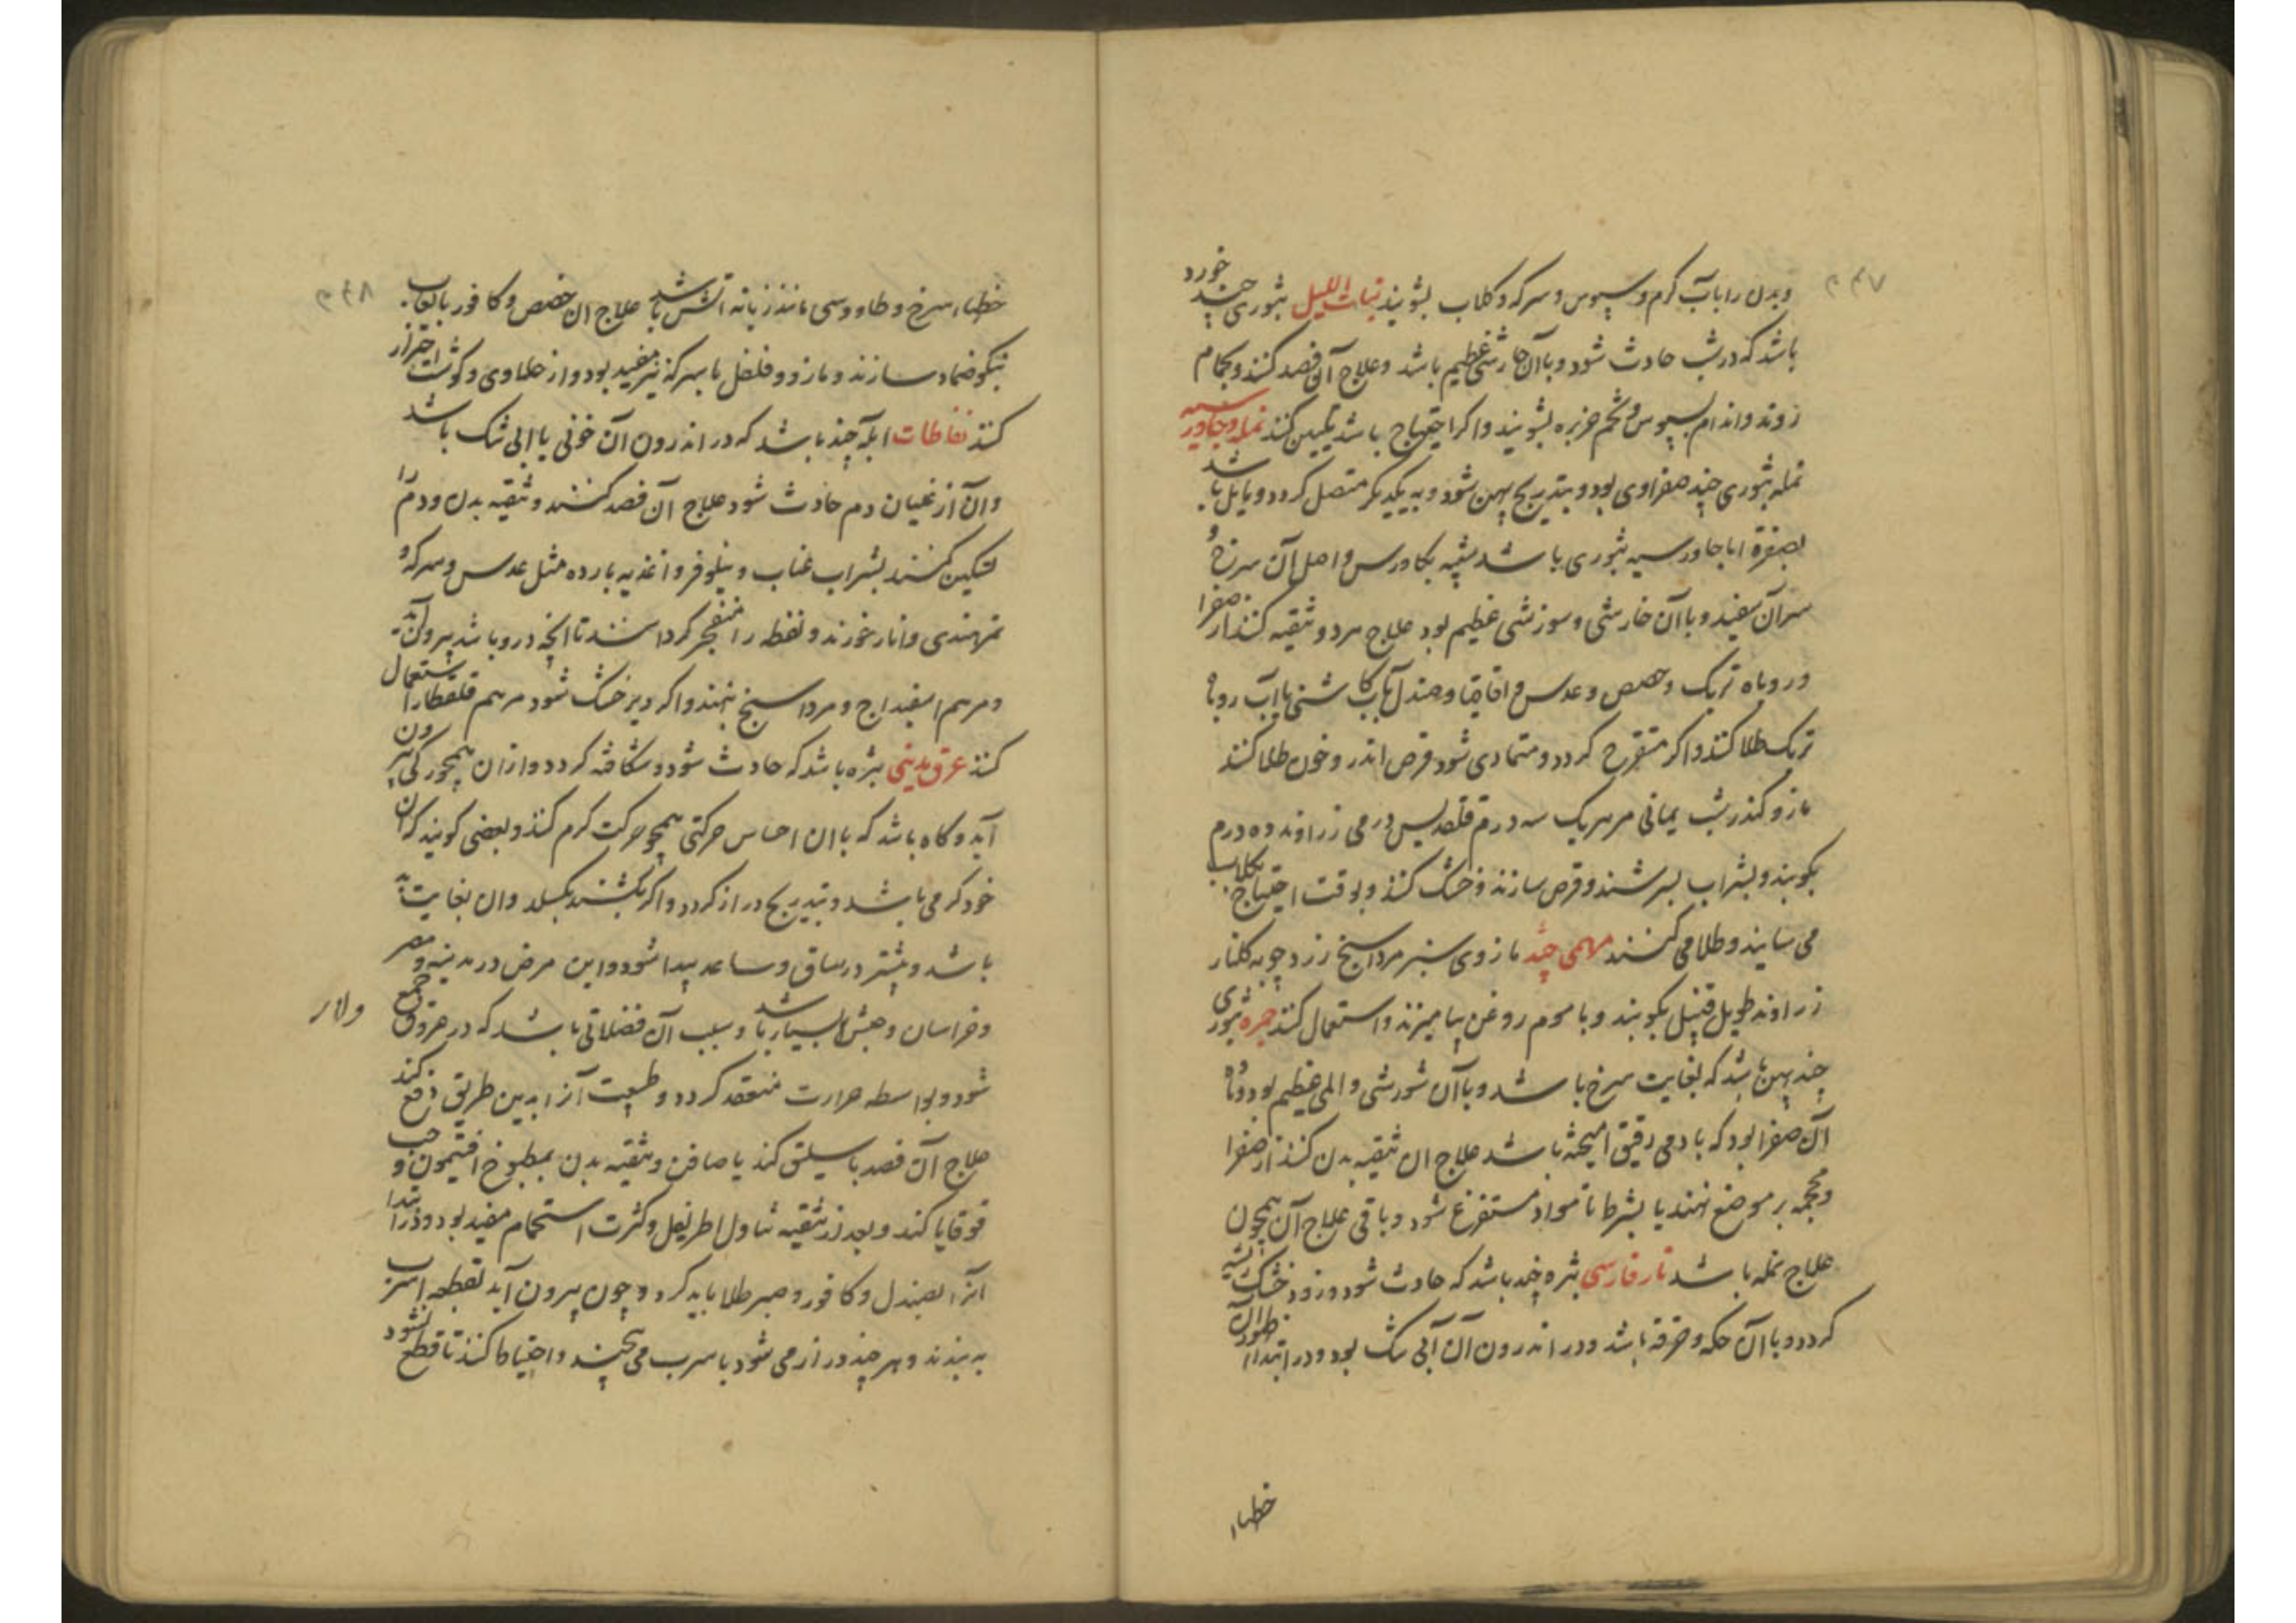 وبدن را بآب کرم وسپوس وسرکه وکلاب بشویند بنات اللیل بثوری چند خورد
باشد که در شب حادث شود وباآن خارشی عظیم باشد وعلاج آن فصد کنند وبحمام
روند واندام بسپوس وتخم خربزه بشویند واکر احتیاج باشد تلیین کنند نمله وجاورسیه
نمله بثوری چند صفراوی بود وبتدریج پهن شود وبه یکدیکر متصل کردد ومایل باشد
بصفرة اما جاورسیه بثوری باشد شبیه بکاورس واصل آن سرخ و
سرآن سفید وباآن خارشی وسوزشی عظیم بود علاج هردو تنقیه کنند از صفرا
وروباه تربک وحضض وعدس واقاقیا وصندل بآب کاسنی یا آب روباه
تربک طلا کنند واکر متقرح کردد ومتمادی شود قرص اندروخون طلا کنند
مازو کندر شب یمانی مر هریک سه درم قلقدیس درمی زراوند ده درم
بکوبند وبشراب بسرشند وقرص سازند وخشک کنند وبوقت احتیاج بکلاب
می سایند وطلا می کنند مرهمی چند مازوی سبز مرداسنج زردچوبه کلنار
زراوند طویل قنبیل بکوبند وبا موم روغن بیامیزند واستعمال کنند جمره بثوری
چند پهن باشد که بغایت سرخ باشد وباآن شورشی والمی عظیم بود وماده
آن صفرا بود که بادمی رقیق آمیخته باشد علاج ان تنقیه بدن کنند از صفرا
ومحجمه بر موضع نهند یا بشرط تا مواد مستفرغ شود وباقی علاج آن همچون
علاج نمله باشد نار فارسی بثره چند باشد که حادث شود وزود خشک ریشه
کردد وباآن حکه وحرقه باشد ودر اندرون آن آبی تنک بود ودر ابتداء ظهور آن
خطهاء
خطهاء سرخ وطاووسی مانند زبانه آتش باشد علاج ان حضض وکافور بالعاب
نیکو ضماد سازند ومازو وفلفل با سرکه نیز مفید بود واز حلاوی وکوشت احتراز
کنند نفاطات ابله چند باشد که در اندرون آن خونی یا ابی تنک باشد
وآن از غلیان دم حادث شود علاج آن فصد کنند وتنقیه بدن ودم را
تسکین کنند بشراب عناب ونیلوفر واغذیه بارده مثل عدس وسرکه و
تمرهندی وانار خورند ونفطه را منفجر کردانند تا انچه درو باشد بیرون آید
ومرهم اسفیداج ومرداسنج نهند واکر دیر خشک شود مرهم قلقطار استعمال
کنند عرق مدینی بثره باشد که حادث شود وشکافته کردد وازان همچو رکی بیرون
آید وکاه باشد که باان احساس حرکتی همچو حرکت کرم کنند وبعضی کویند که آن
خود کرمی باشد وبتدریج دراز کردد واکر بکشند بکسلد وان بغایت بد
باشد وبیشتر در ساق وساعد پیدا شود واین مرض در مدینه ومصر
وخراسان وحبش بسیار باشد وسبب آن فضلاتی باشد که در عروق جمع
ولار
شود وبواسطه حرارت منعقد کردد وطبیعت آنرا بدین طریق دفع کند
علاج آن فصد باسلیق کنند یا صافن وتنقیه بدن بمطبوخ افتیمون وحب
قوقایا کنند وبعد از تنقیه تناول اطریفل وکثرت استحمام مفید بود ودر ابتدا
آنرا بصندل وکافور وصبر طلا باید کرد وچون بیرون آید بقطعه اسرب
به بندند وهر چند دراز می شود باسرب می پیچند واحتیاط کنند تا قطع نشود